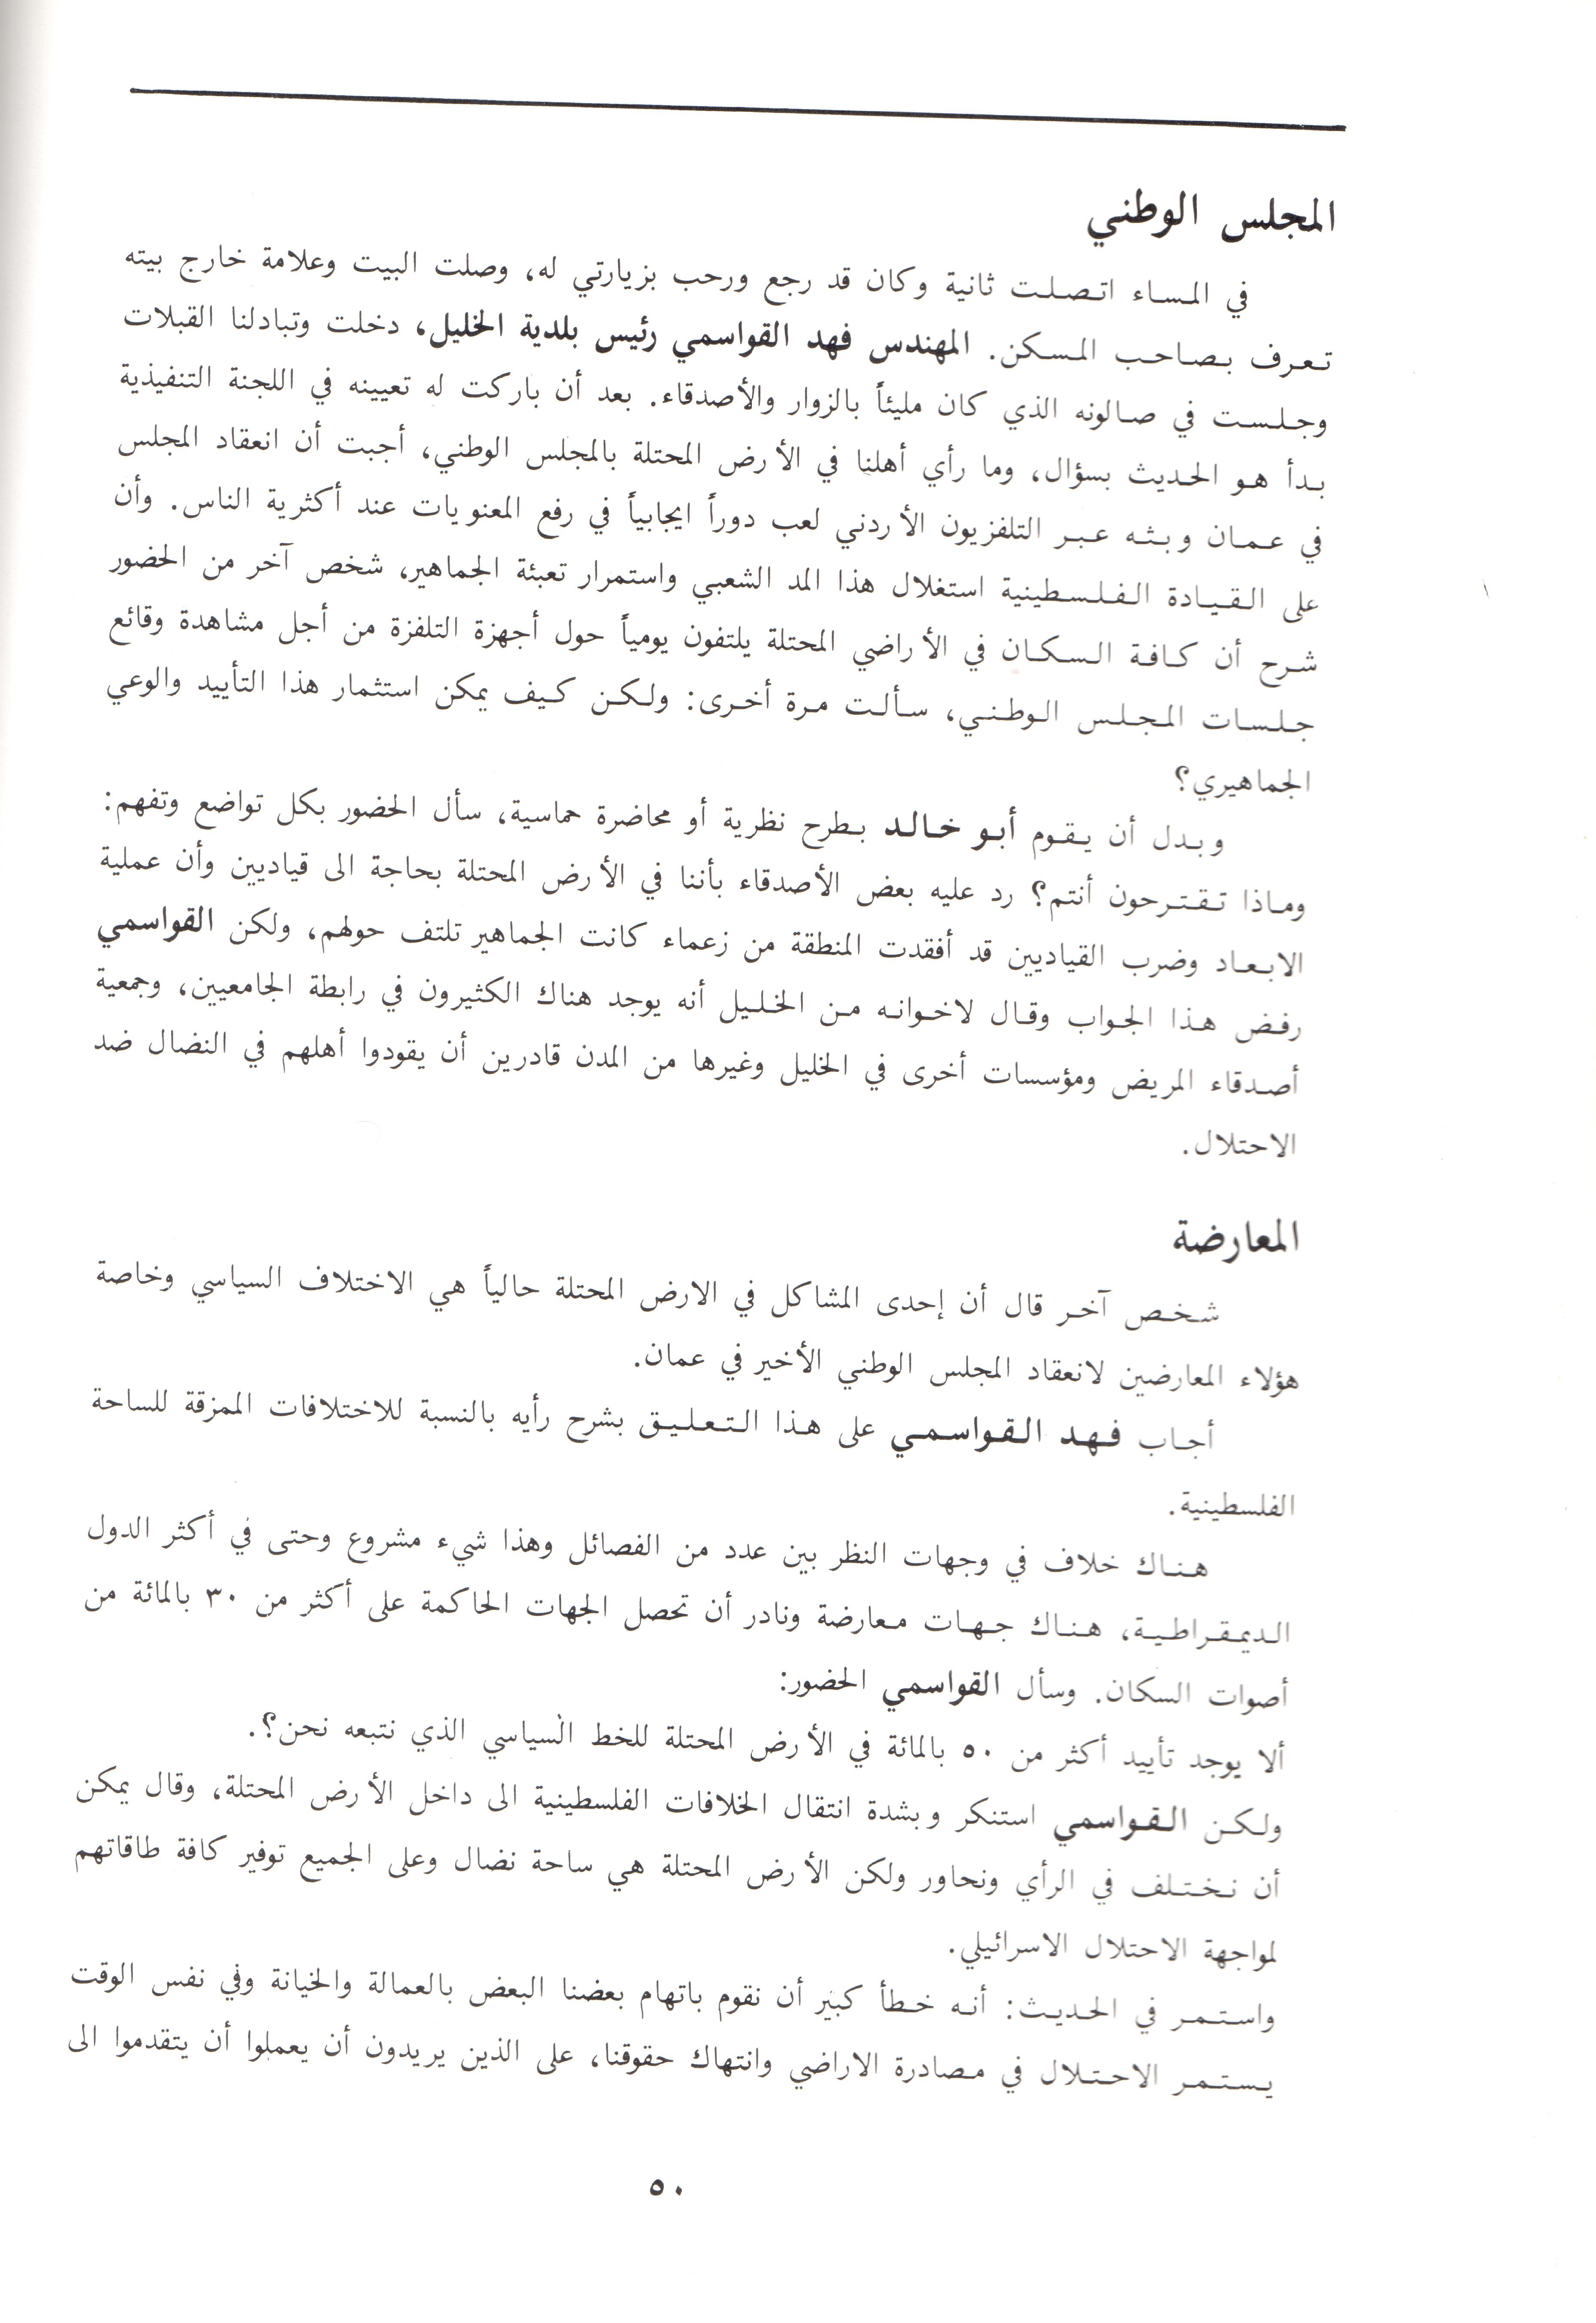 المجلس الوطني
في المساء اتصلت ثانية وكان قد رجع ورحب بزيارتي له، وصلت البيت وعلامة خارج بيته
تعرف بصاحب المسكن. المهندس فهد القواسمي رئيس بلدية الخليل، دخلت وتبادلنا القبلات
وجلست في صالونه الذي كان مليئاً بالزوار والأصدقاء. بعد أن باركت له تعيينه في اللجنة التنفيذية
بدأ هو الحديث بسؤال، وما رأي أهلنا في الأرض المحتلة بالمجلس الوطني، أجبت أن انعقاد المجلس
في عمان وبثه عبر التلفزيون الأردني لعب دوراً ايجابياً في رفع المعنويات عند أكثرية الناس. وأن
على القيادة الفلسطينية استغلال هذا المد الشعبي واستمرار تعبئة الجماهير، شخص آخر من الحضور
شرح أن كافة السكان في الأراضي المحتلة يلتفون يومياً حول أجهزة التلفزة من أجل مشاهدة وقائع
جلسات المجلس الوطني، سألت مرة أخرى: ولكن كيف يمكن استثمار هذا التأييد والوعي
الجماهيري؟
وبدل أن يقوم أبو خالد بطرح نظرية أو محاضرة حماسية، سأل الحضور بكل تواضع وتفهم:
وماذا تقترحون أنتم؟ رد عليه بعض الأصدقاء بأننا في الأرض المحتلة بحاجة الى قياديين وأن عملية
الابعاد وضرب القياديين قد أفقدت المنطقة من زعماء كانت الجماهير تلتف حولهم، ولكن القواسمي
رفض هذا الجواب وقال لاخوانه من الخليل أنه يوجد هناك الكثيرون في رابطة الجامعيين، وجمعية
أصدقاء المريض ومؤسسات أخرى في الخليل وغيرها من المدن قادرين أن يقودوا أهلهم في النضال ضد
الاحتلال.
المعارضة
شخص آخر قال أن إحدى المشاكل في الارض المحتلة حالياً هي الاختلاف السياسي وخاصة
هؤلاء المعارضين لانعقاد المجلس الوطني الأخير في عمان.
أجاب فهد القواسمي على هذا التعليق بشرح رأيه بالنسبة للاختلافات الممزقة للساحة
الفلسطينية.
هناك خلاف في وجهات النظر بين عدد من الفصائل وهذا شيء مشروع وحتى في أكثر الدول
الديمقراطية، هناك جهات معارضة ونادر أن تحصل الجهات الحاكمة على أكثر من ٣٠ بالمائة من
أصوات السكان. وسأل القواسمي الحضور:
ألا يوجد تأييد أكثر من ٥٠ بالمائة في الأرض المحتلة للخط السياسي الذي نتبعه نحن؟.
ولكن القواسمي استنكر وبشدة انتقال الخلافات الفلسطينية الى داخل الأرض المحتلة، وقال يمكن
أن نختلف في الرأي ونحاور ولكن الأرض المحتلة هي ساحة نضال وعلى الجميع توفير كافة طاقاتهم
لمواجهة الاحتلال الاسرائيلي.
واستمر في الحديث: أنه خطأ كبير أن نقوم باتهام بعضنا البعض بالعمالة والخيانة وفي نفس الوقت
يستمر الاحتلال في مصادرة الاراضي وانتهاك حقوقنا، على الذين يريدون أن يعملوا أن يتقدموا الى
٥٠